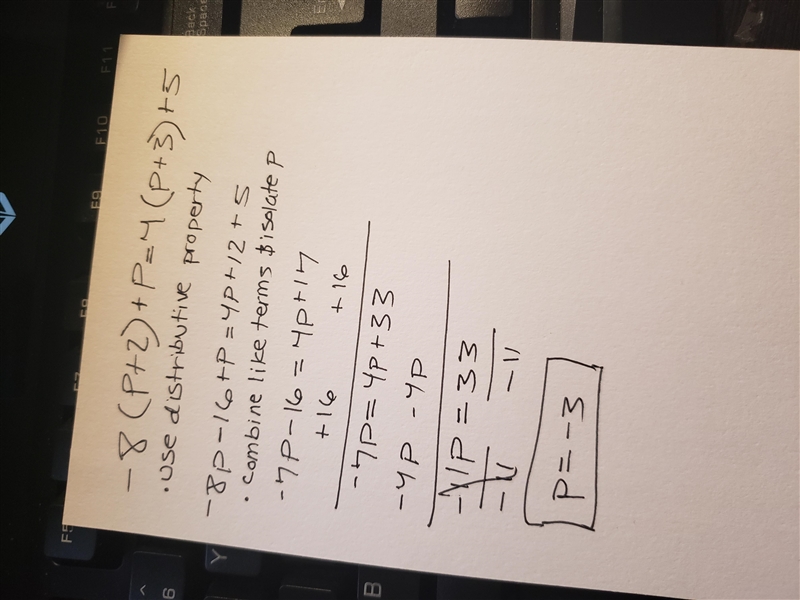 -8(P+2)+P=4(P+3)+5
.use distributive property
-8P-16+P=4P+12+5
.combine like terms & isolate P
-7P-16=4P+17
+16 +16
-7P=4P+33
-4P -4P
-11P=33
-11 -11
P=-3
Back Space
ENTER
F11
F10
F9
F8
F7
F5
Y
B
^
6